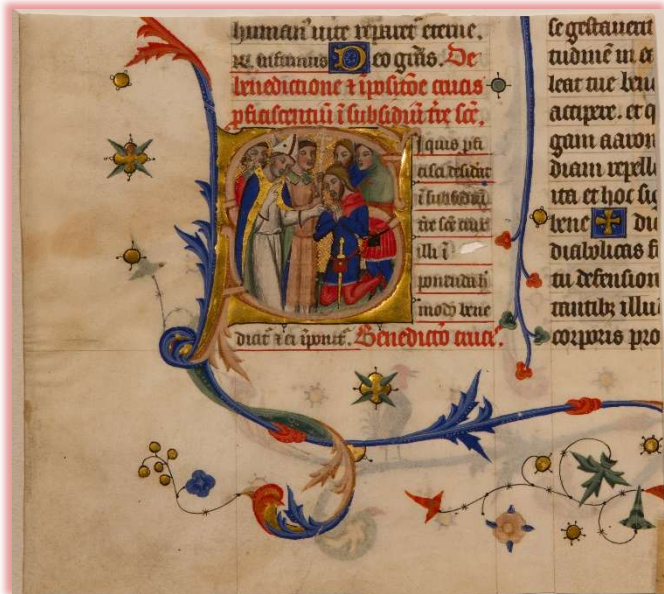 humanˉ uite reparet eterne.
Deo gr̄as. De
benedictione ⁊ īpositōe crucis
pficiscentiū ī subsidiū tr̄e sc̄e.
Siquis pfi
cisci desidat
ī subsidiū
tr̄e sc̄e crux
illi ī
ponenda
modo bene
dicat̄ ⁊ ei īponit̄. Benedictio cruc̄.
se gestauerit
tudinē
leat tue bene
accipere. et q
gam aaron
diam repell
ita et hoc sig
bene ✠ di
diabolicas f
tu defension
illu
corporis pro